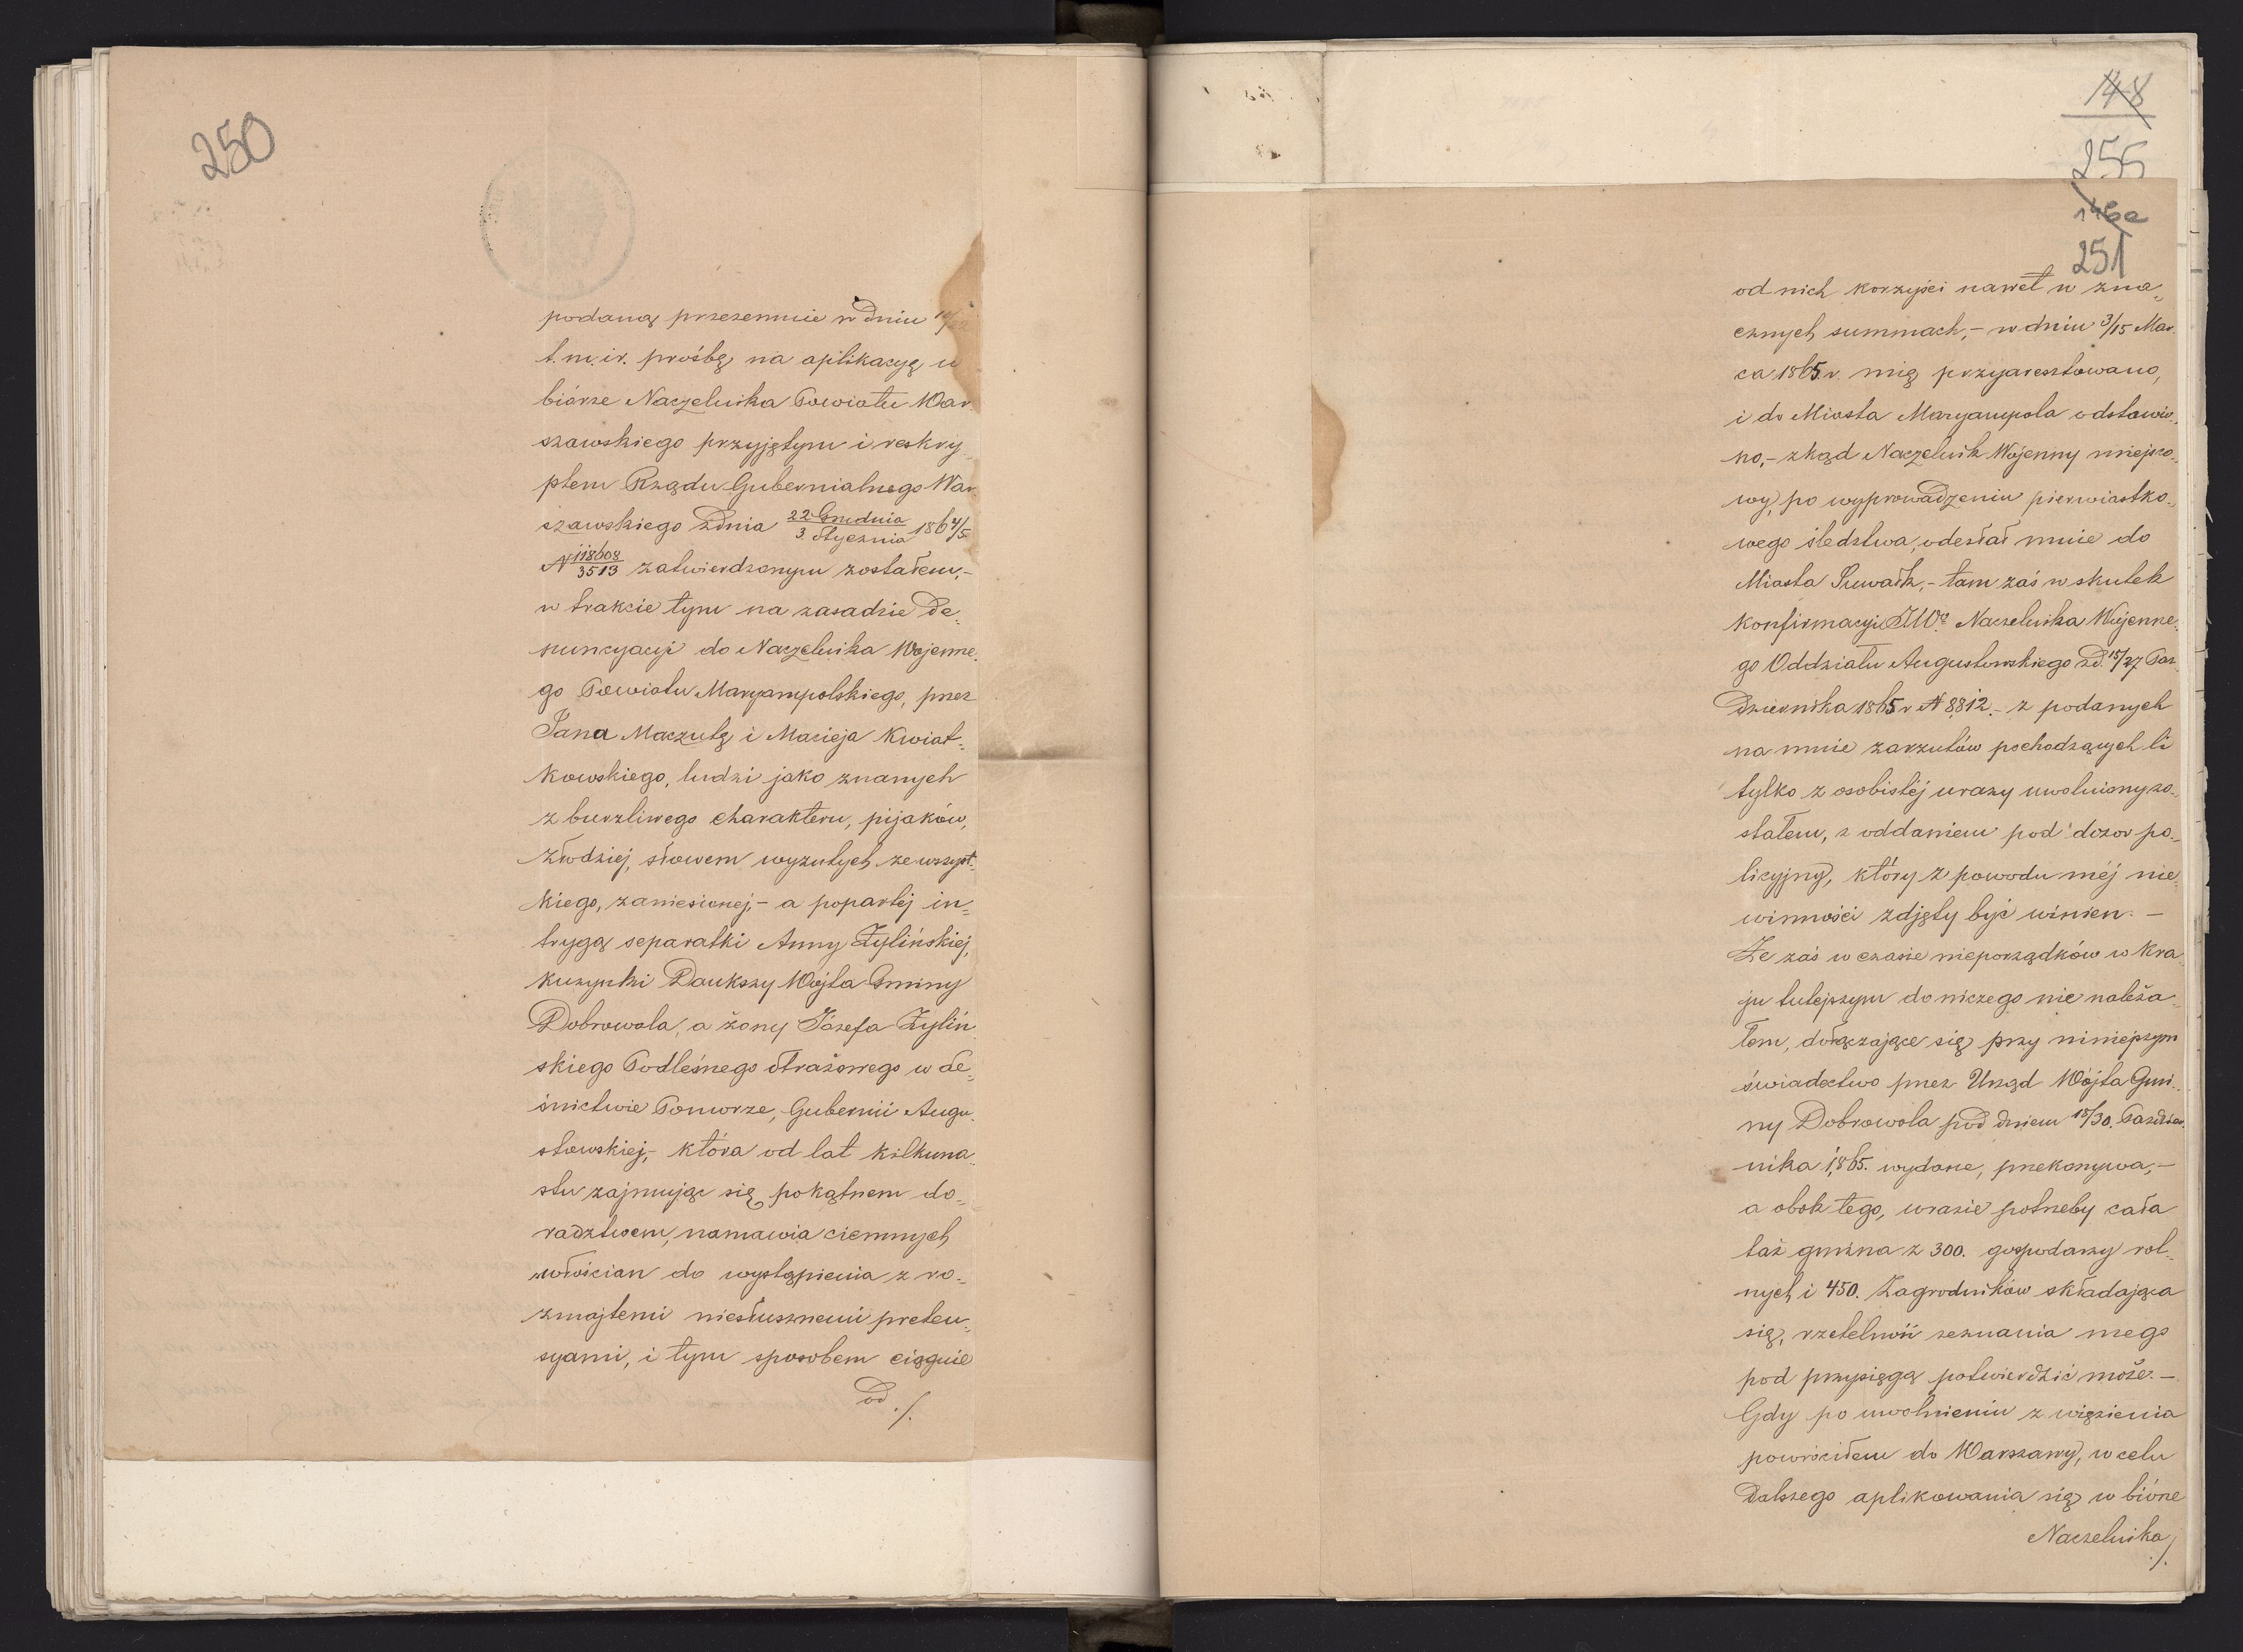 250
podaną przezemnie w dniu 10/22
t. m. i r. prośbę na aplikacyę w
biórze Naczelnika Powiatu War-
szawskiego przyjętym i reskry-
ptem Rządu Gubernialnego War-
szawskiego z dnia 22 Grudnia/3 Stycznia 1864/5
N 118608/3513 zatwierdzonym zostałem,-
w trakcie tym na zasadzie de-
nuncyacyi do Naczelnika Wojenne-
go Powiatu Maryampolskiego, przez
Jana Maczutę i Macieja Kwiat-
kowskiego, ludzi jako znanych
z burzliwego charakteru, pijaków,
złodziej, słowem wyzutych ze wszyst-
kiego, zaniesionej,- a popartéj in-
trygą separatki Anny Żylińskiej,
kuzynki Daukszy Wójta Gminy
Dobrowola, a żony Józefa Żyliń-
skiego Podleśnego Strażowego w Le-
śnictwie Pomorze, Gubernii Augu-
stowskiej,- która od lat kilkuna-
stu zajmując się pokątnem do-
radztwem, namawia ciemnych
włościan do wystąpienia z ro-
zmajtemi niesłusznemi preten-
syami, i tym sposobem ciągnie
od ./.
148
255
146a
251
od nich korzyści nawet w zna-
cznych summach,- w dniu 3/15 Mar-
ca 1865 r. mię przyaresztowano,
i do Miasta Maryampola odstawio-
no,- zkąd Naczelnik Wojenny miejsco-
wy, po wyprowadzeniu pierwiastko-
wego śledztwa, odesłał mnie do
Miasta Suwałk,- tam zaś w skutek
konfirmacyi JWo Naczelnika Wojenne-
go Oddziału Augustowskiego z d. 15/27 Paź-
dziernika 1865 r N 8812.- z podanych
na mnie zarzutów pochodzących li
tylko z osobistéj urazy uwolniony zo-
stałem, z oddaniem pod dozor po-
licyjny, który z powodu méj nie-
winności zdjęty być winien. -
Że zaś w czasie nieporządków w Kra-
ju tutejszym do niczego nie należa-
łem, dołączające się przy niniejszym
świadectwo przez Urząd Wójta Gmi-
ny Dobrowola pod dniem 18/30. Paździer-
nika 1865. wydane, przekonywa,-
a obok tego, w razie potrzeby cała
taż gmina z 300. gospodarzy rol-
nych i 450. Zagrodników składająca
się, rzetelność zeznania mego
pod przysięgą potwierdzić może. -
Gdy po uwolnieniu z więzienia
powróciłem do Warszawy, w celu
dalszego aplikowania się w biórze
Naczelnika ./.